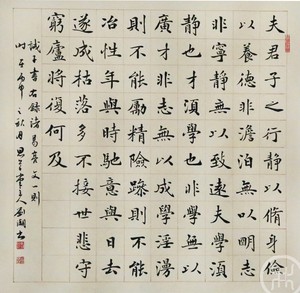 夫君子之行静以脩身儉
以養德非澹泊無以明志
非寧静無以致遠夫學須
静也才須學也非學無以
廣才非志無以成學淫漫
則不能勵精險躁則不能
冶性年與時馳意與日去
遂成枯落多不接世悲守
窮廬將復何及
誡子書右錄諸葛亮文一則
時在丙申之秋月